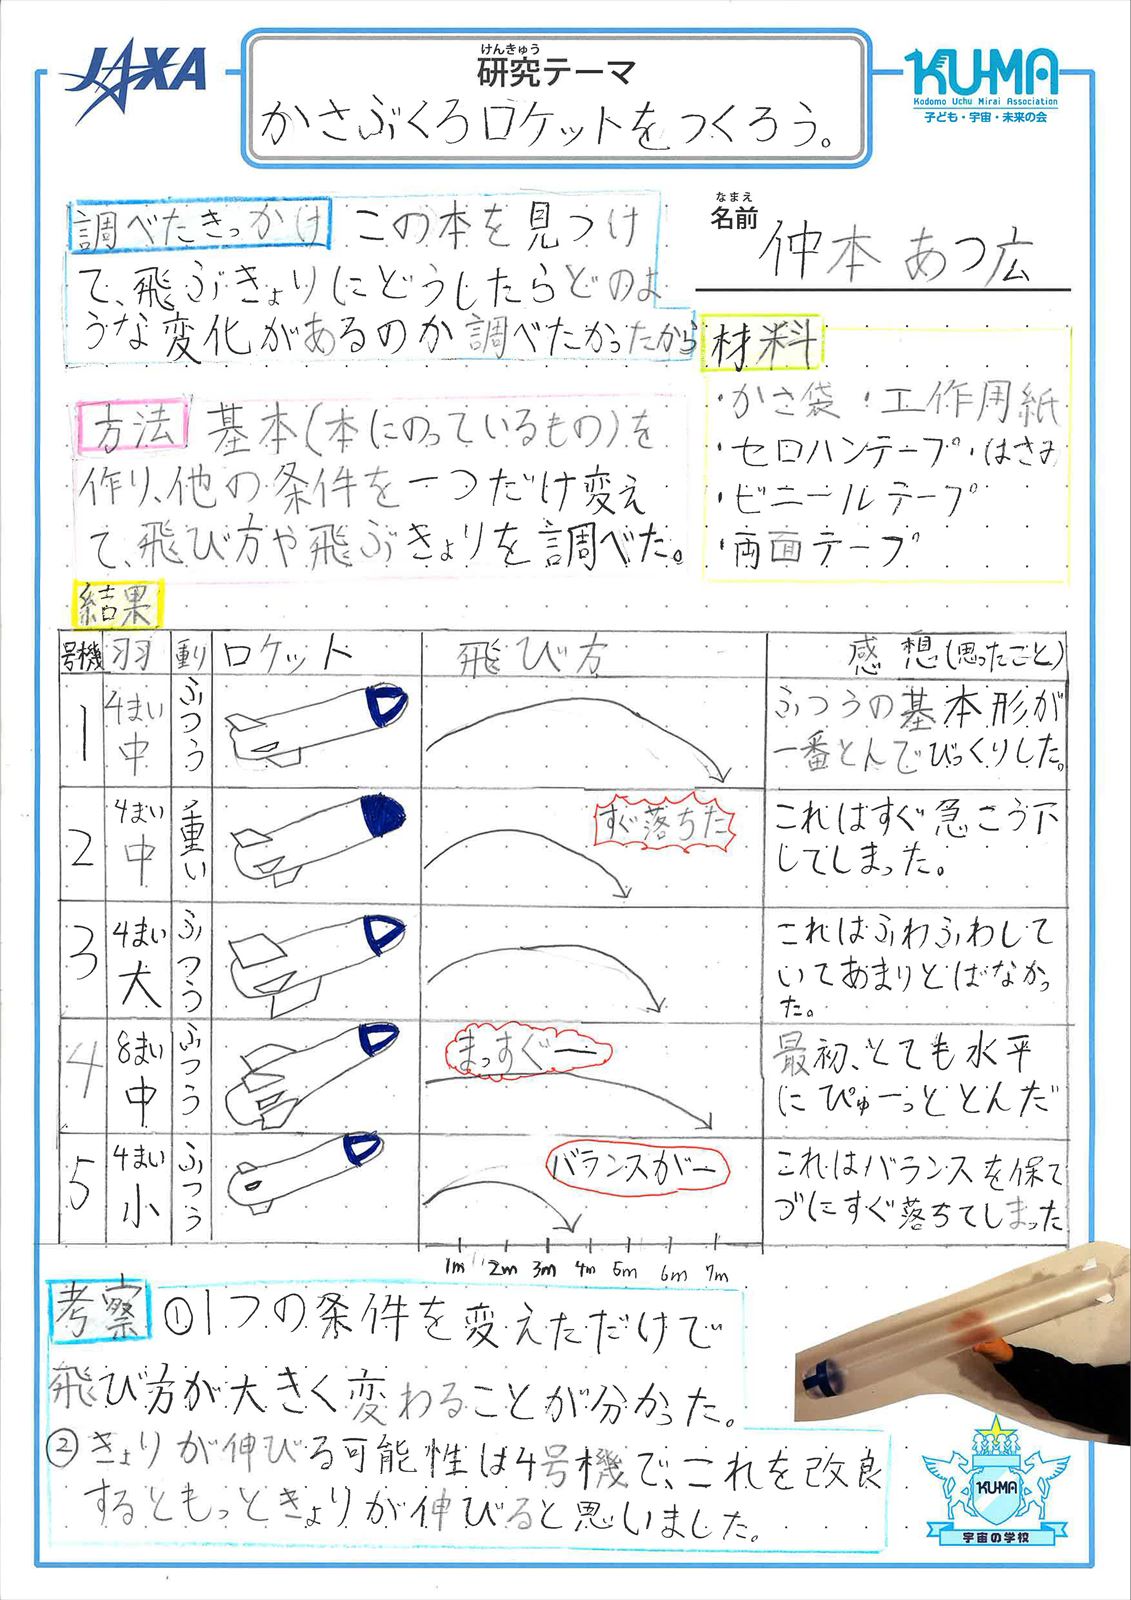 JAXA
けんきゅう
研究テーマ
かさぶくろロケットをつくろう。
KU-MA
Kodomo Uchu Mirai Association
子ども・宇宙・未来の会
なまえ
名前
仲本 あつ広
調べたきっかけ この本を見つけ
て、飛ぶきょりにどうしたらどのよ
うな変化があるのか調べたかったから
方法 基本(本にのっているもの)を
作り、他の条件を一つだけ変え
て、飛び方や飛ぶきょりを調べた。
材料
・かさ袋 ・工作用紙
・セロハンテープ・はさみ
・ビニールテープ
・両面テープ
結果
号機 羽 重り ロケット 飛び方 感想(思ったこと)
1 4まい中 ふつう
ふつうの基本形が
一番とんでびっくりした。
2 4まい中 重い
すぐ落ちた
これはすぐ急こう下
してしまった。
3 4まい大 ふつう
これはふわふわして
いてあまりとばなかっ
た。
4 8まい中 ふつう
まっすぐー
最初、とても水平
にぴゅーっととんだ
5 4まい小 ふつう
バランスがー
これはバランスを保て
づにすぐ落ちてしまった
1m 2m 3m 4m 5m 6m 7m
考察 ①1つの条件を変えただけで
飛び方が大きく変わることが分かった。
②きょりが伸びる可能性は4号機で、これを改良
するともっときょりが伸びると思いました。
KU-MA
宇宙の学校